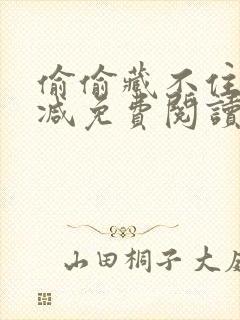 偷偷藏不住
減免費閱讀
山田桐子大庭